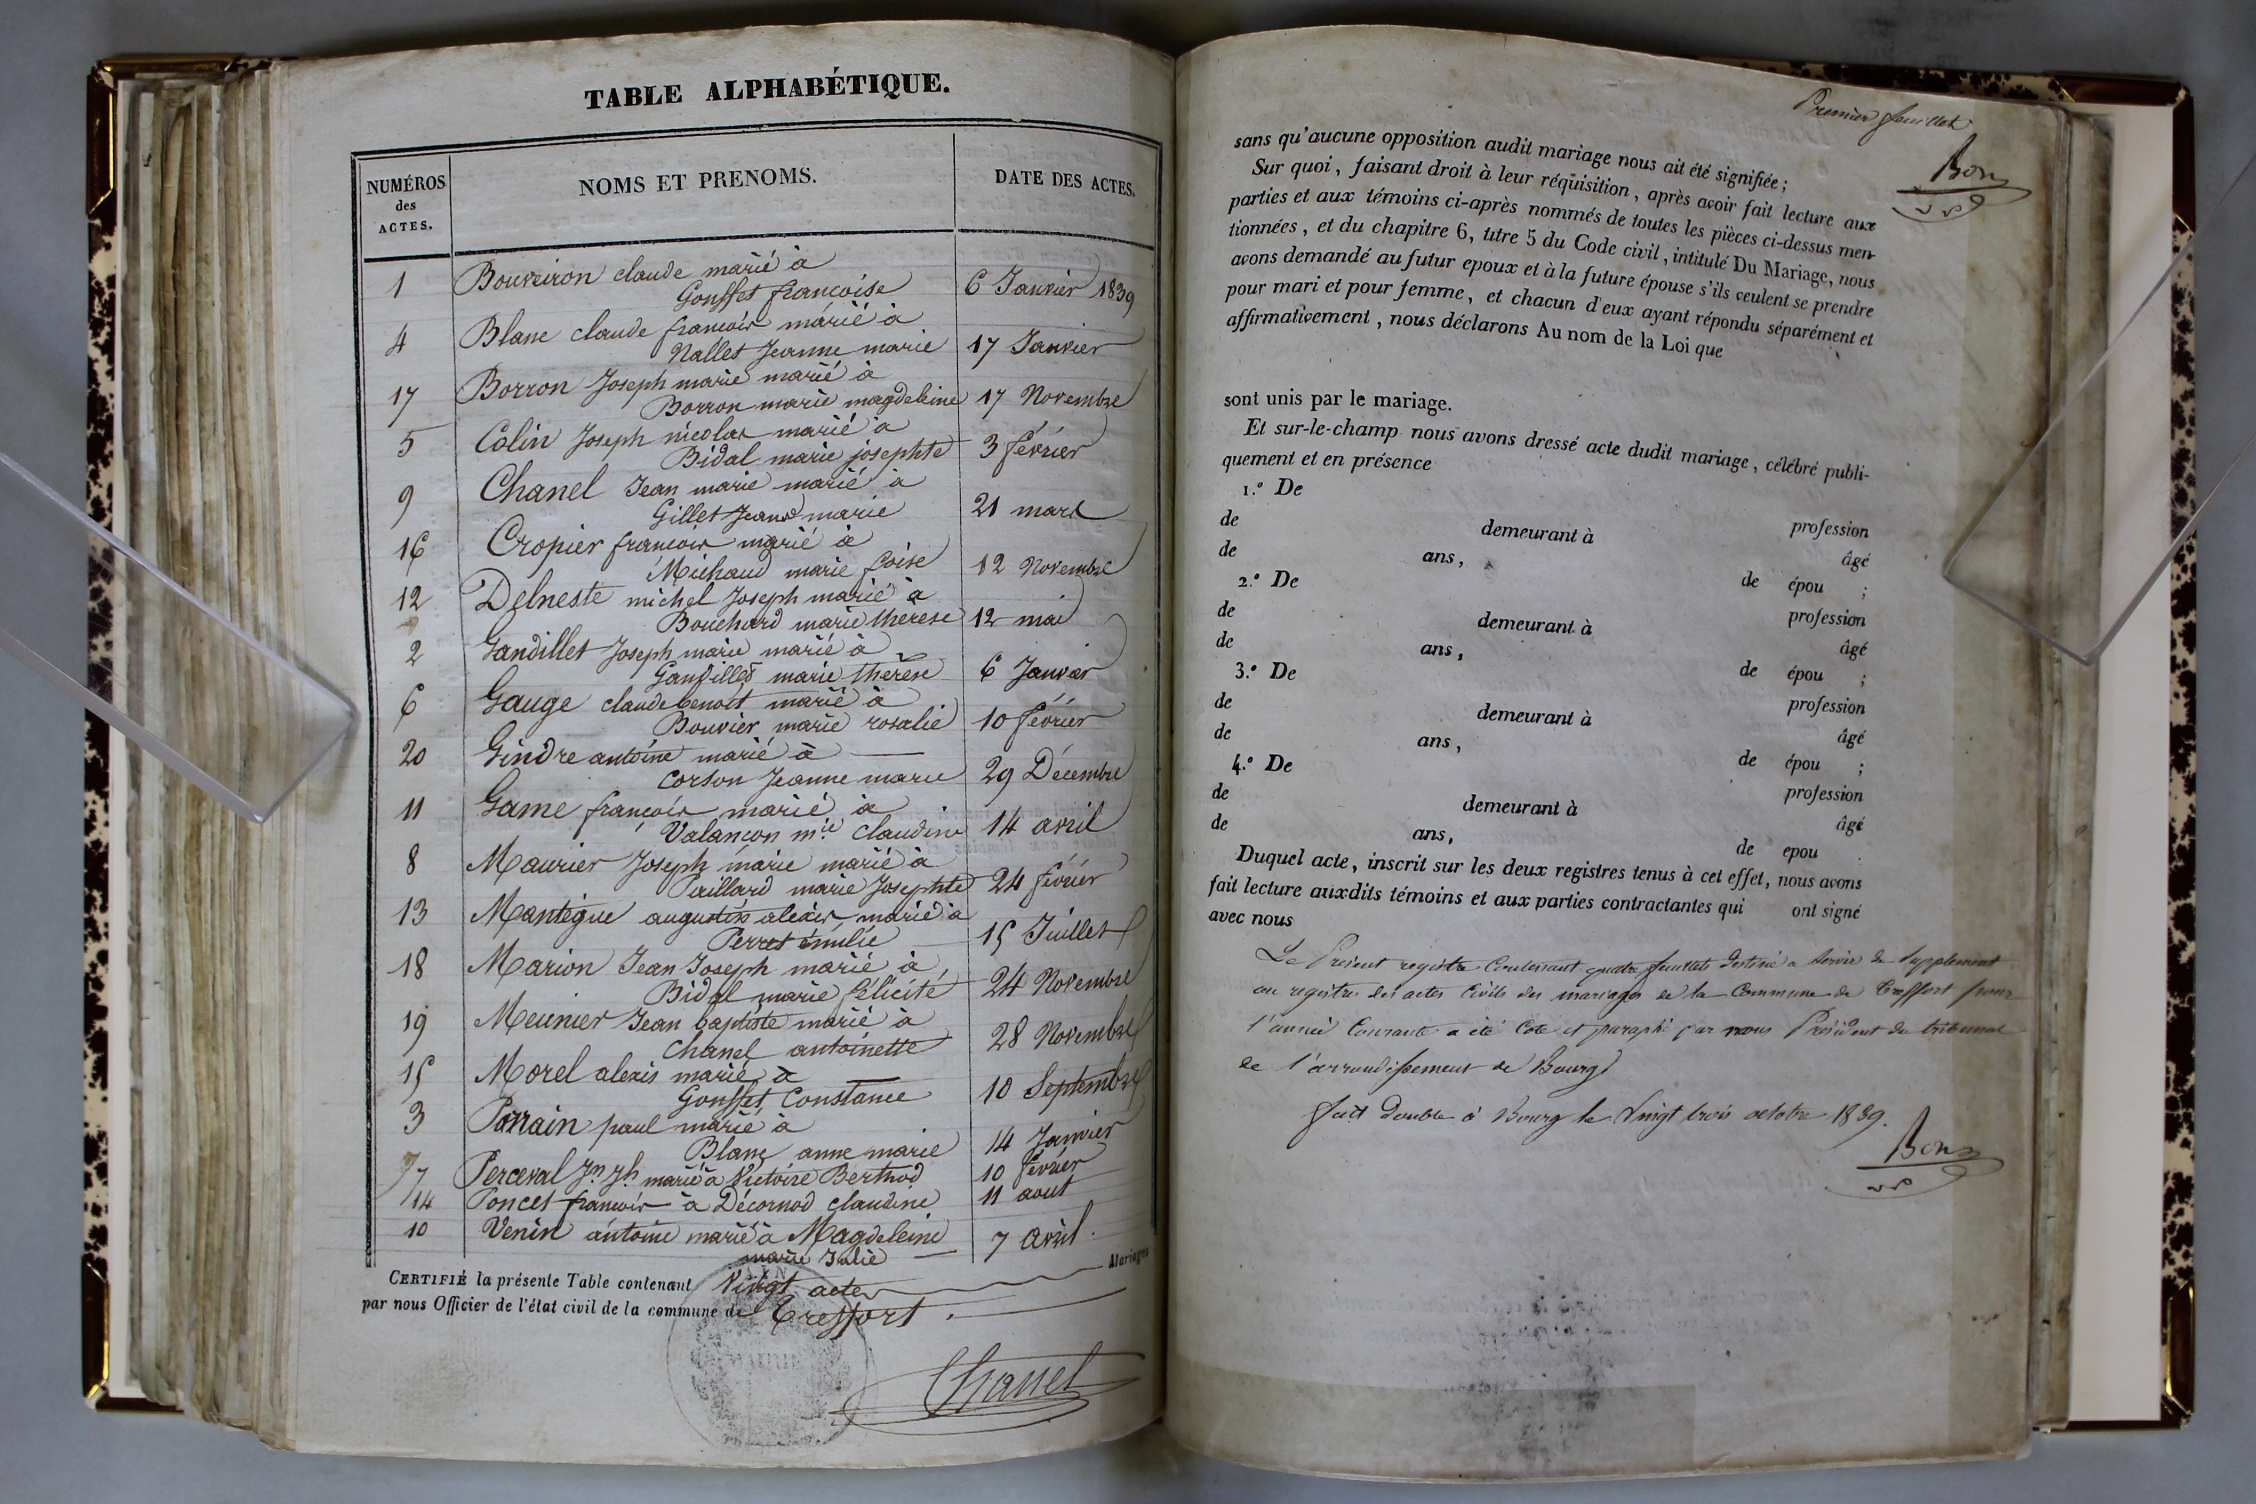 TABLE ALPHABÉTIQUE.
NUMÉROS
des
ACTES.
NOMS ET PRENOMS.
DATE DES ACTES.
1 Bouveiron claude marié à
Gonsset françoise 6 Janvier 1839
4 Blanc claude françois marié à
Nallet Jeanne marie 17 Janvier
17 Borron Joseph marie marié à
Borron marie magdeleine 17 Novembre
5 Colin Joseph nicolas marié à
Bidal marie josephte 3 février
9 Chanel Jean marie marié à
Gillet Jeanne marie 21 mars
16 Cropier françois marié à
Michaud marie foise 12 Novembre
12 Delneste michel Joseph marié à
Bouchard marie thérèse 12 mai
2 Gandillet Joseph marie marié à
Gandillet marie thérèse 6 Janvier
6 Gauge claude benoît marié à
Bouvier marie rosalie 10 février
20 Gindre antoine marié à
Corson Jeanne marie 29 Décembre
11 Game françois marié à
Valançon mie Claudine 14 avril
8 Maurier Joseph marie marié à
Paillard marie Josephte 24 février
13 Mantègue augustin alexis marié à
Perret émilie 15 Juillet
18 Marion Jean Joseph marié à
Bidal marie félicité 24 Novembre
19 Meunier Jean baptiste marié à
Chanel antoinette 28 Novembre
15 Morel alexis marié à
Gonsset Constance 10 Septembre
3 Parrain paul marié à
Blanc anne marie 14 Janvier
7 Perceval Jn Jh marié à Victoire Berthod 10 février
14 Poncet françois à Décornod claudine 11 aout
10 Venin antoine marié à Magdeleine
marie Julie 7 avril.
CERTIFIÉ la présente Table contenant Vingt actes Mariages
par nous Officier de l'état civil de la commune de Treffort.
MAIRIE
Chanel
Premier feuillet
Bon
sans qu'aucune opposition audit mariage nous ait été signifiée ;
Sur quoi, faisant droit à leur réquisition, après avoir fait lecture aux
parties et aux témoins ci-après nommés de toutes les pièces ci-dessus men-
tionnées, et du chapitre 6, titre 5 du Code civil, intitulé Du Mariage, nous
avons demandé au futur epoux et à la future épouse s'ils veulent se prendre
pour mari et pour femme, et chacun d'eux ayant répondu séparément et
affirmativement, nous déclarons Au nom de la Loi que
sont unis par le mariage.
Et sur-le-champ nous avons dressé acte dudit mariage, célébré publi-
quement et en présence
1.° De
de demeurant à profession
de ans, âgé
2.° De de épou ;
de demeurant à profession
de ans, âgé
3.° De de épou ;
de demeurant à profession
de ans, âgé
4.° De de épou ;
de demeurant à profession
de ans, âgé
de epou
Duquel acte, inscrit sur les deux registres tenus à cet effet, nous avons
fait lecture auxdits témoins et aux parties contractantes qui ont signé
avec nous
Le Présent registre Contenant quatre feuillets destiné a Servir de Supplement
au registre des actes Civils des mariages de la Commune de Treffort pour
l'année Courante a été Coté et paraphé par nous Président du tribunal
de l'arrondissement de Bourg
fait Double à Bourg le Vingt trois octobre 1839.
Bon